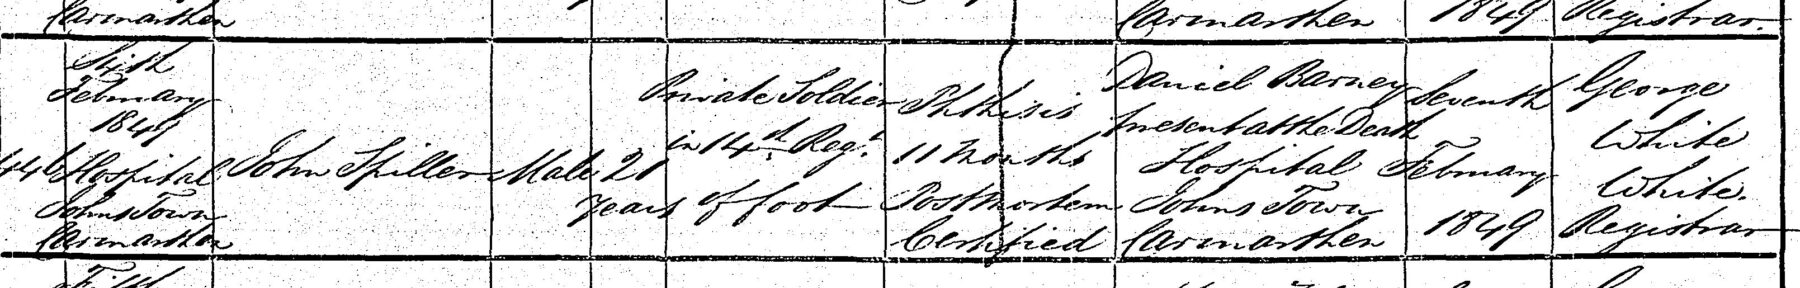 Carmarthen Carmarthen 1849 Registrar.
Sixth
February
1849
446 Hospital
Johns Town
Carmarthen
John Spiller
Male
21
Years
Private Soldier
in 14th Regt
of foot
Phthisis
11 Months
Postmortem
Certified
Daniel Barney
present at the Death
Hospital
Johns Town
Carmarthen
Seventh
February
1849
George
White
White.
Registrar